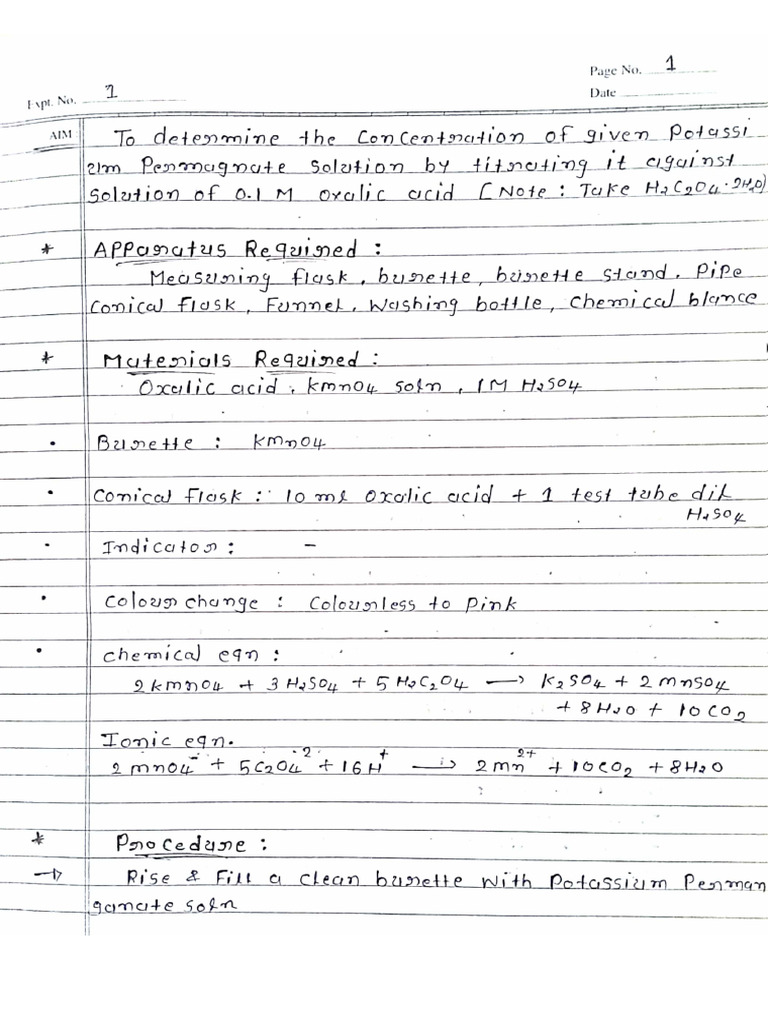 Page No. 1
Expt. No. 1
Date
AIM
To determine the Concentration of given Potassi
um Permagnate solution by titrating it against
solution of 0.1 M oxalic acid [Note : Take H₂C₂O₄·2H₂O)
* Apparatus Required :
Measuring flask, burette, burette stand, Pipe
Conical flask, Funnel, Washing bottle, Chemical blance
* Materials Required :
Oxalic acid, kmno4 soln, 1M H₂SO4
• Burette : kmno4
• Conical flask : 10 ml oxalic acid + 1 test tube dil
H₂SO4
• Indicator : -
• Colour change : Colourless to Pink
• chemical eqn :
2kmnO4 + 3H₂SO4 + 5H₂C₂O4 → K₂SO4 + 2mnSO4
+ 8H₂O + 10CO₂
Ionic eqn.
2mnO4⁻ + 5C₂O4⁻² + 16H⁺ → 2mn²⁺ + 10CO₂ + 8H₂O
* Procedure :
→ Rise & Fill a clean burette with Potassium Perman
ganate soln